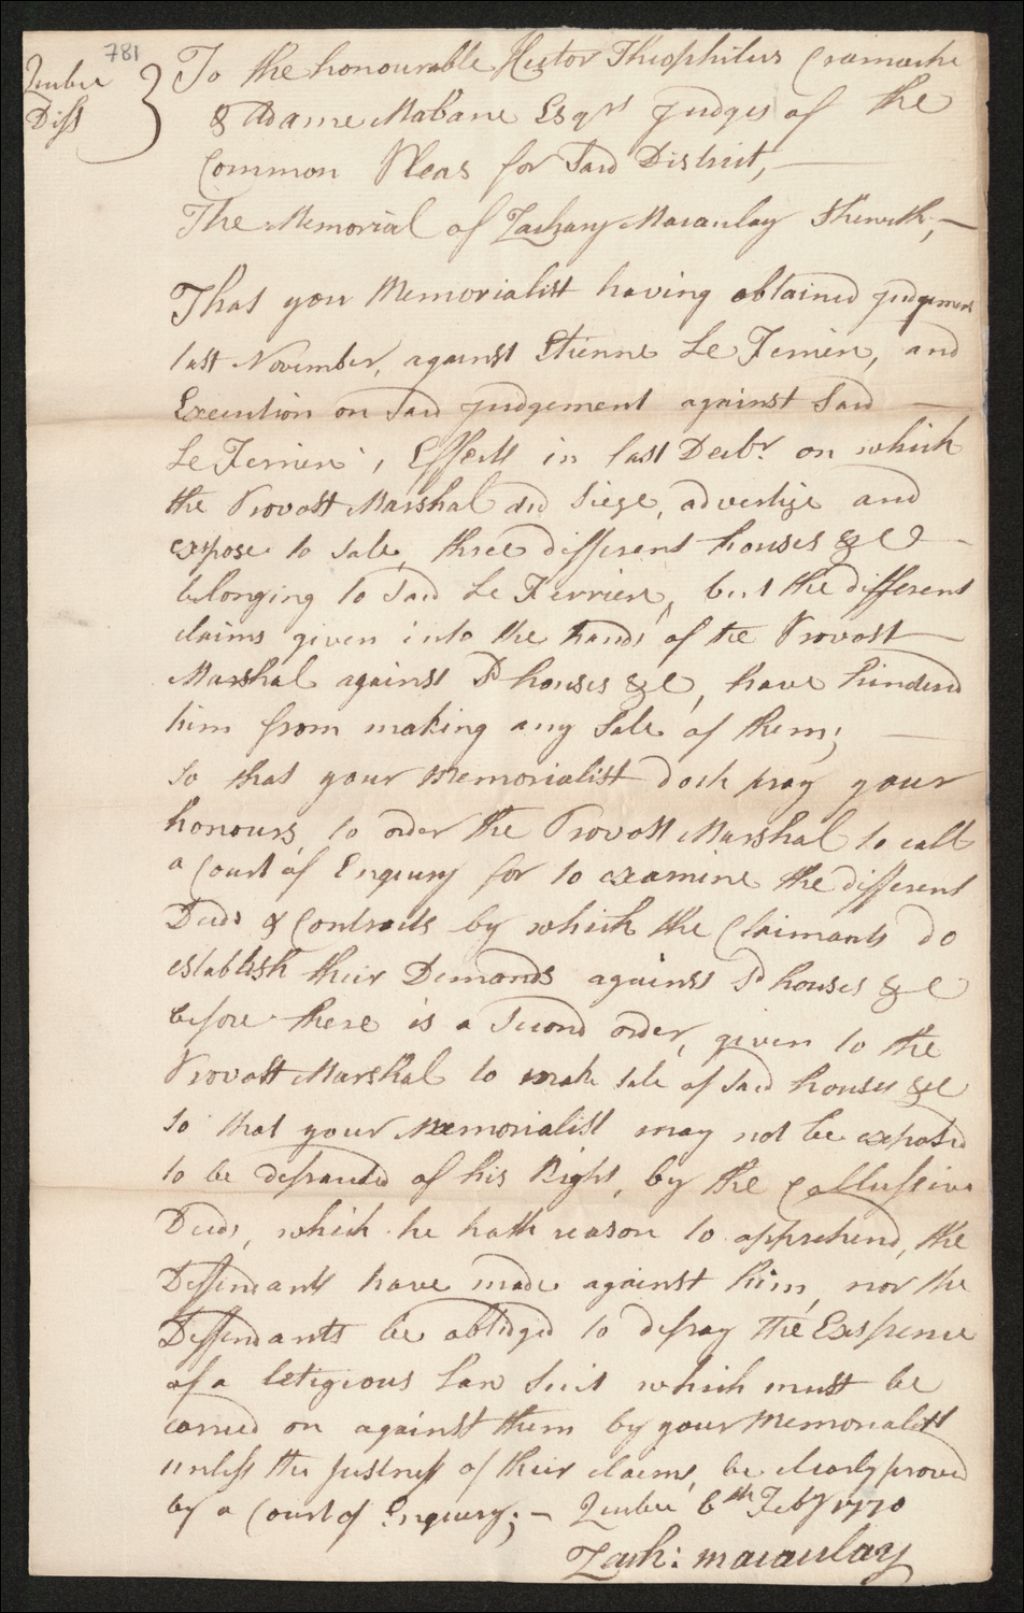 781
Quebec
Diss
To the honourable Hector Theophilus Cramache
& Adame Mabane Esqrs Judges of the
Common Pleas for Said District, —
The Memorial of Zachary Macaulay Sheweth; —
That your Memorialist having obtained judgement
last November, against Etienne Le Ferrier, and
Execution on Said judgement against Said —
Le Ferrier, Effects in last Decbr. on which
the Provost Marshal did Siege, advertize and
expose to Sale, three different houses &c —
belonging to Said Le Ferrier, but the different
claims given into the hands of the Provost —
Marshal against Sd houses &c, have hindered
him from making any Sale of them; —
So that your Memorialist doth pray your
honours, to order the Provost Marshal to call
a Court of Enquiry for to examine the different
Deeds & Contracts by which the Claimants do
establish their Demands against Sd houses &c
before there is a Second order, given to the
Provost Marshal to make Sale of Said houses &c
So that your Memorialist may not be exposed
to be defrauded of his Right, by the Collussive
Deeds, which he hath reason to apprehend, the
Deffendants have made against him, nor the
Deffendants be oblidged to defray the Exspence
of a letigious Law Suit which must be
carried on against them by your Memorialist
unless the justness of their claims, be clearly proved
by a Court of Enquiry; — Quebec 6th Feby 1770
Zach: Macaulay